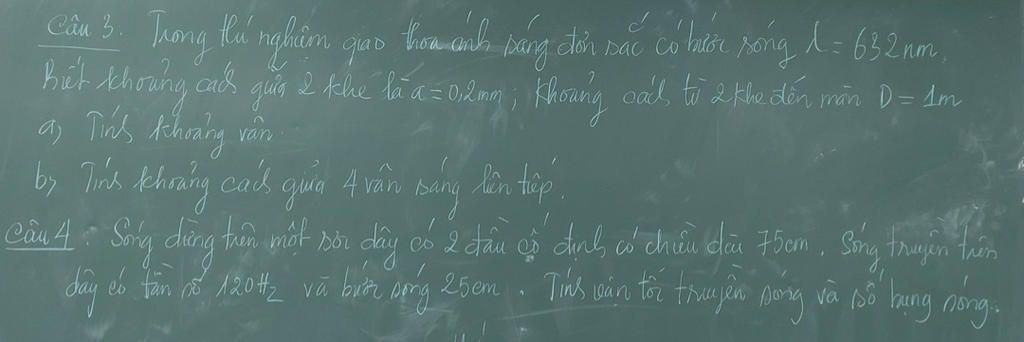 Câu 3. Trong thí nghiệm giao thoa ánh sáng đơn sắc có bước sóng λ = 632nm.
Biết khoảng cách giữa 2 khe là a = 0,2mm; khoảng cách từ 2 khe đến màn D = 1m
a) Tính khoảng vân.
b) Tính khoảng cách giữa 4 vân sáng liên tiếp.
Câu 4. Sóng dừng trên một sợi dây có 2 đầu cố định có chiều dài 75cm. Sóng truyền trên
dây có tần số 120Hz và bước sóng 25cm. Tính vận tốc truyền sóng và số bụng sóng.